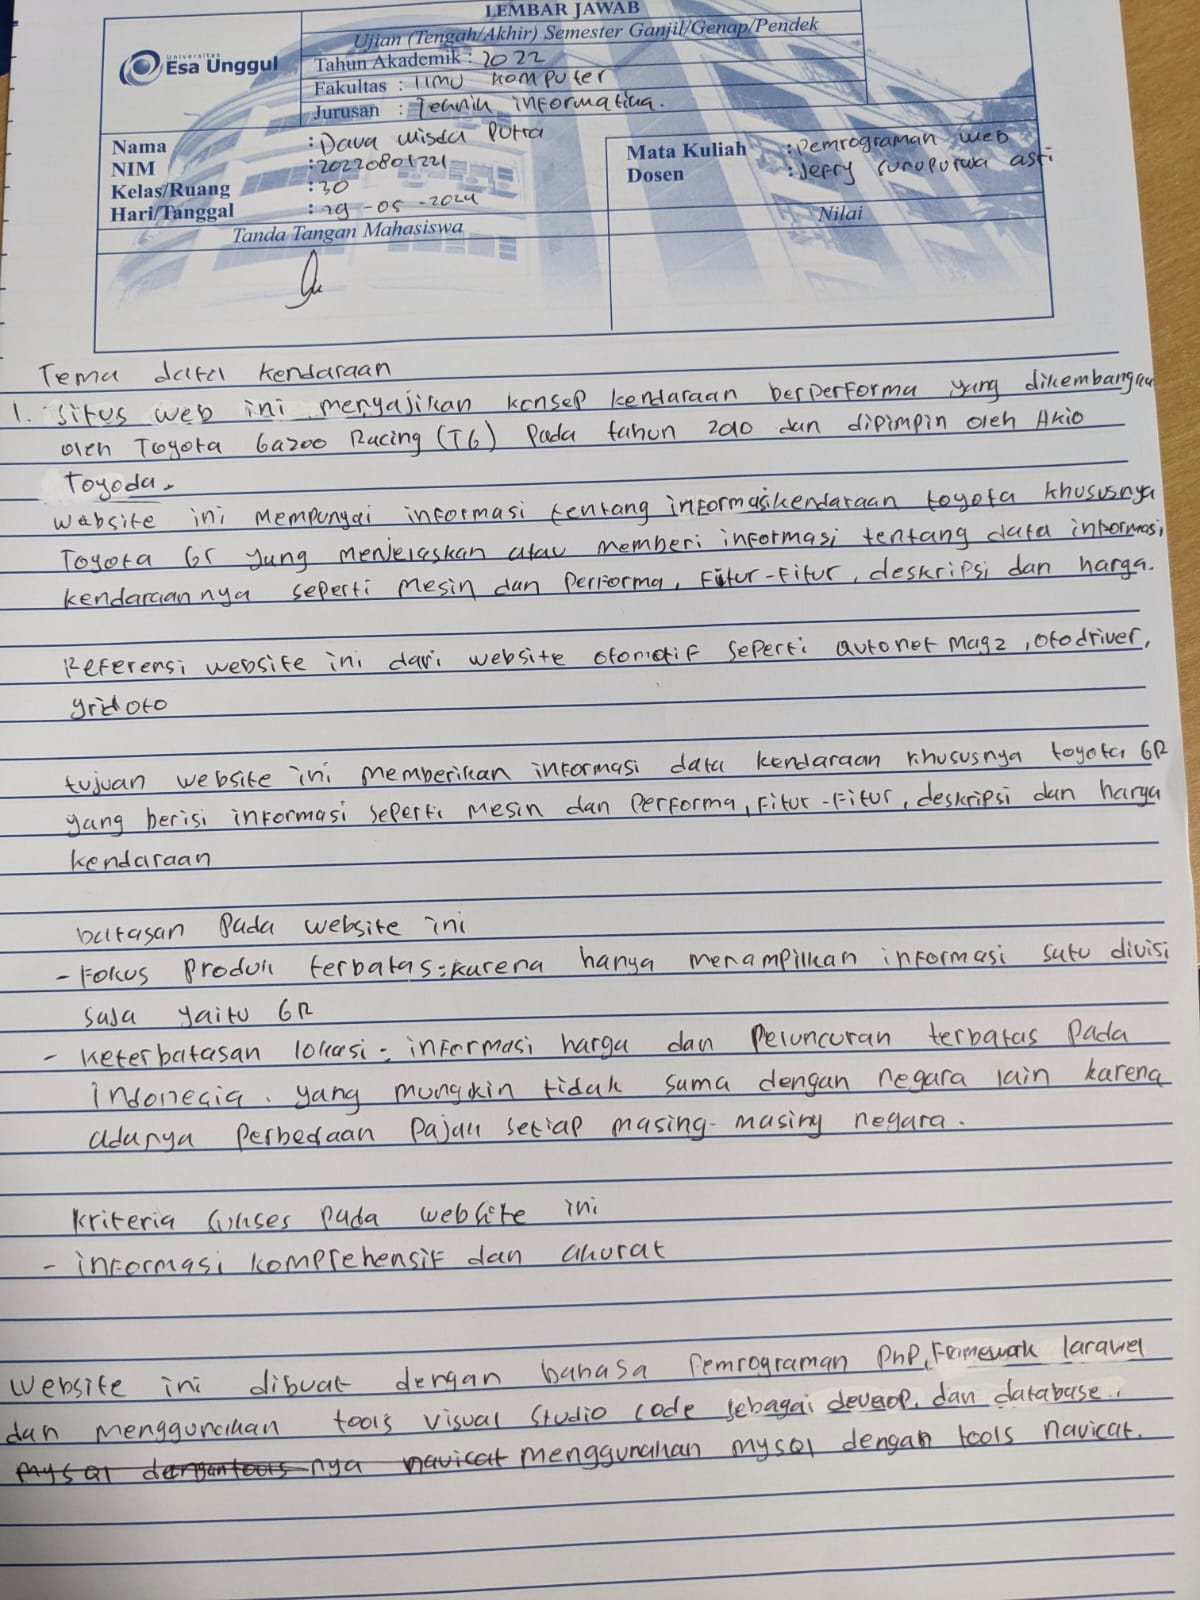 LEMBAR JAWAB
Ujian (Tengah/Akhir) Semester Ganjil/Genap/Pendek
Universitas
Esa Unggul
Tahun Akademik : 2022
Fakultas : Ilmu Komputer
Jurusan : Teknik informatika.
Nama : Dava wisda Putra
NIM : 20220801221
Kelas/Ruang : 30
Hari/Tanggal : 29-05-2024
Mata Kuliah : Pemrograman web
Dosen : Jefry
Tanda Tangan Mahasiswa
Nilai
Tema data kendaraan
1. Situs web ini menyajikan konsep kendaraan berperforma yang dikembangkan
oleh Toyota Gazoo Racing (TG) Pada tahun 2010 dan dipimpin oleh Akio
Toyoda.
Website ini mempunyai informasi tentang informasi kendaraan toyota khususnya
Toyota GR yang menjelaskan atau memberi informasi tentang data informasi
kendaraannya seperti mesin dan Performa, Fitur-Fitur, deskripsi dan harga.
Referensi website ini dari website otomotif seperti autonet magz, otodriver,
gridoto
tujuan website ini memberikan informasi data kendaraan khususnya toyota GR
yang berisi informasi seperti mesin dan Performa, Fitur-Fitur, deskripsi dan harga
kendaraan
batasan pada website ini
- Fokus Produk terbatas : karena hanya menampilkan informasi satu divisi
saja yaitu GR
- keterbatasan lokasi : informasi harga dan Peluncuran terbatas pada
Indonesia. yang mungkin tidak sama dengan negara lain karena
adanya Perbedaan Pajak setiap masing-masing negara.
kriteria sukses pada website ini
- informasi komprehensif dan akurat
Website ini dibuat dengan bahasa Pemrograman PHP, Framework laravel
dan menggunakan tools visual Studio code sebagai develop, dan database.
mysql dengan tools nya navicat menggunakan mysql dengan tools navicat.